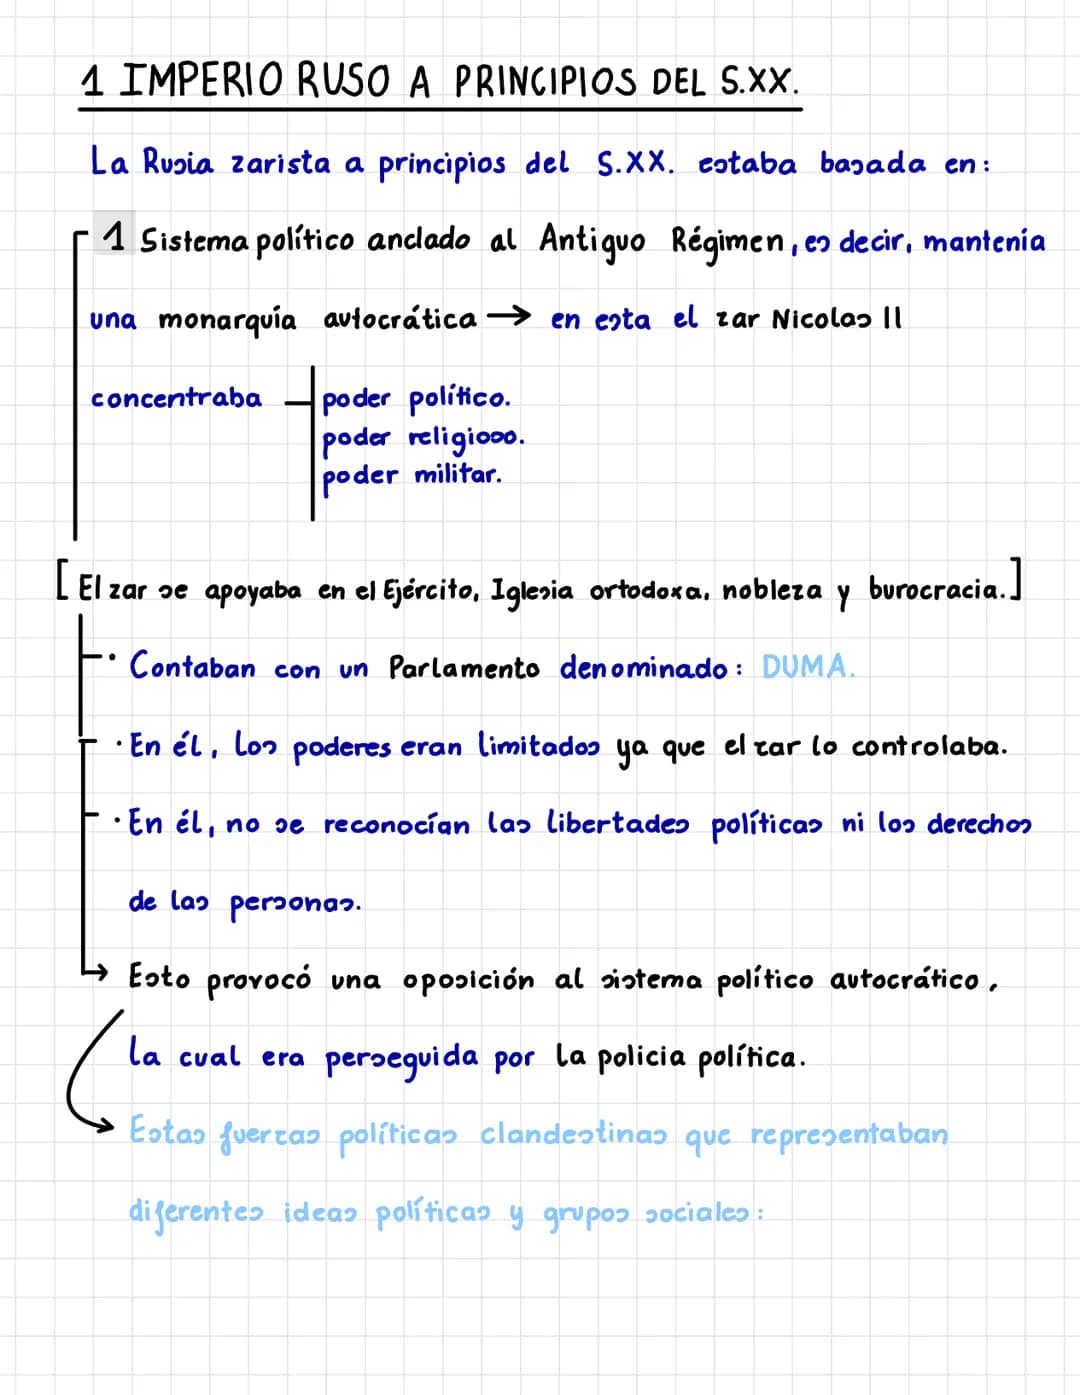 1 IMPERIO RUSO A PRINCIPIOS DEL S.XX.
La Rusia zarista a principios del S.XX. estaba basada en:
1 Sistema político anclado al Antiguo Régimen, es decir, mantenía
una monarquía autocrática → en esta el zar Nicolas II
concentraba poder político.
poder religioso.
poder militar.
[El zar se apoyaba en el Ejército, Iglesia ortodoxa, nobleza y burocracia.]
· Contaban con un Parlamento denominado: DUMA.
· En él, los poderes eran limitados ya que el zar lo controlaba.
· En él, no se reconocían las libertades políticas ni los derechos
de las personas.
→ Esto provocó una oposición al sistema político autocrático,
la cual era perseguida por la policia política.
Estas fuerzas políticas clandestinas que representaban
diferentes ideas políticas y grupos sociales: